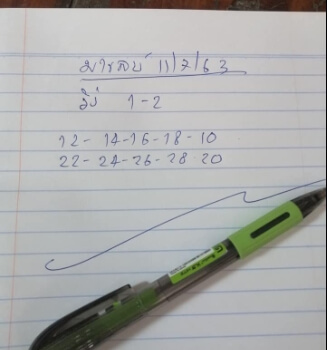 มาเลย์ 11/7/63
วิ่ง 1-2
12- 14-16-18-10
22- 24-26-28-20